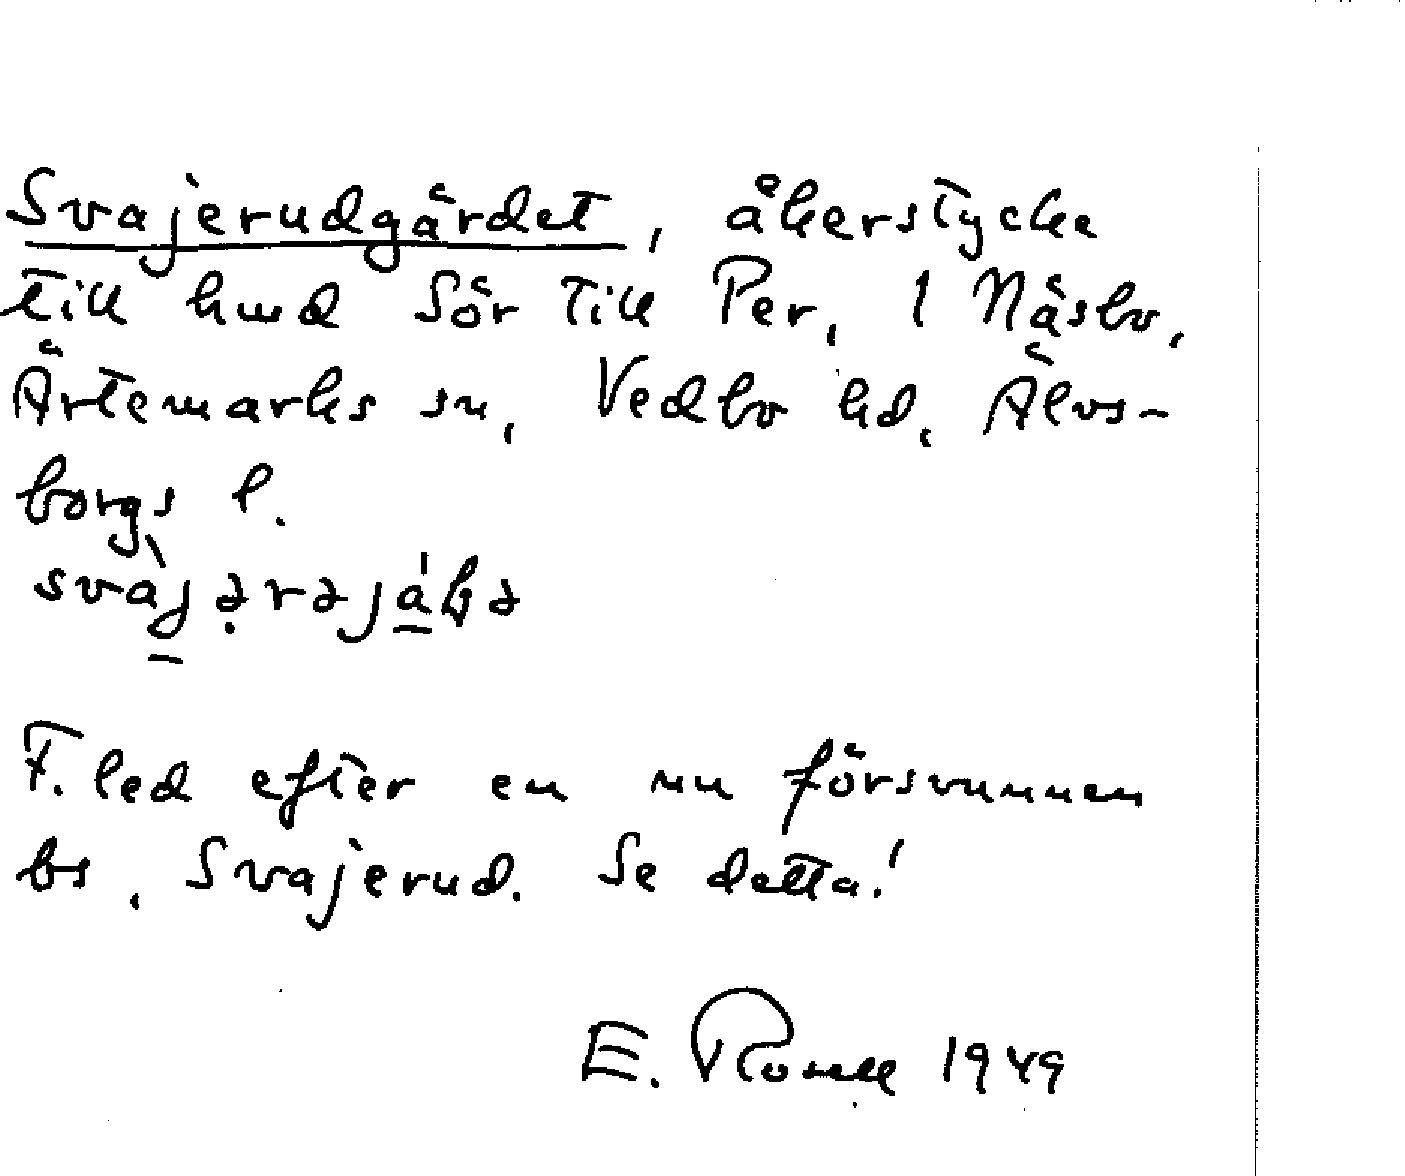 Svajerudgärdet, åkerstycke
till hmd Sör till Per, 1 Näsbo,
Ärtemarks sn, Vedbo hd, Älvs-
borgs l.
F. led efter en nu försvunnen
bs, Svajerud. Se detta!
E. 1949